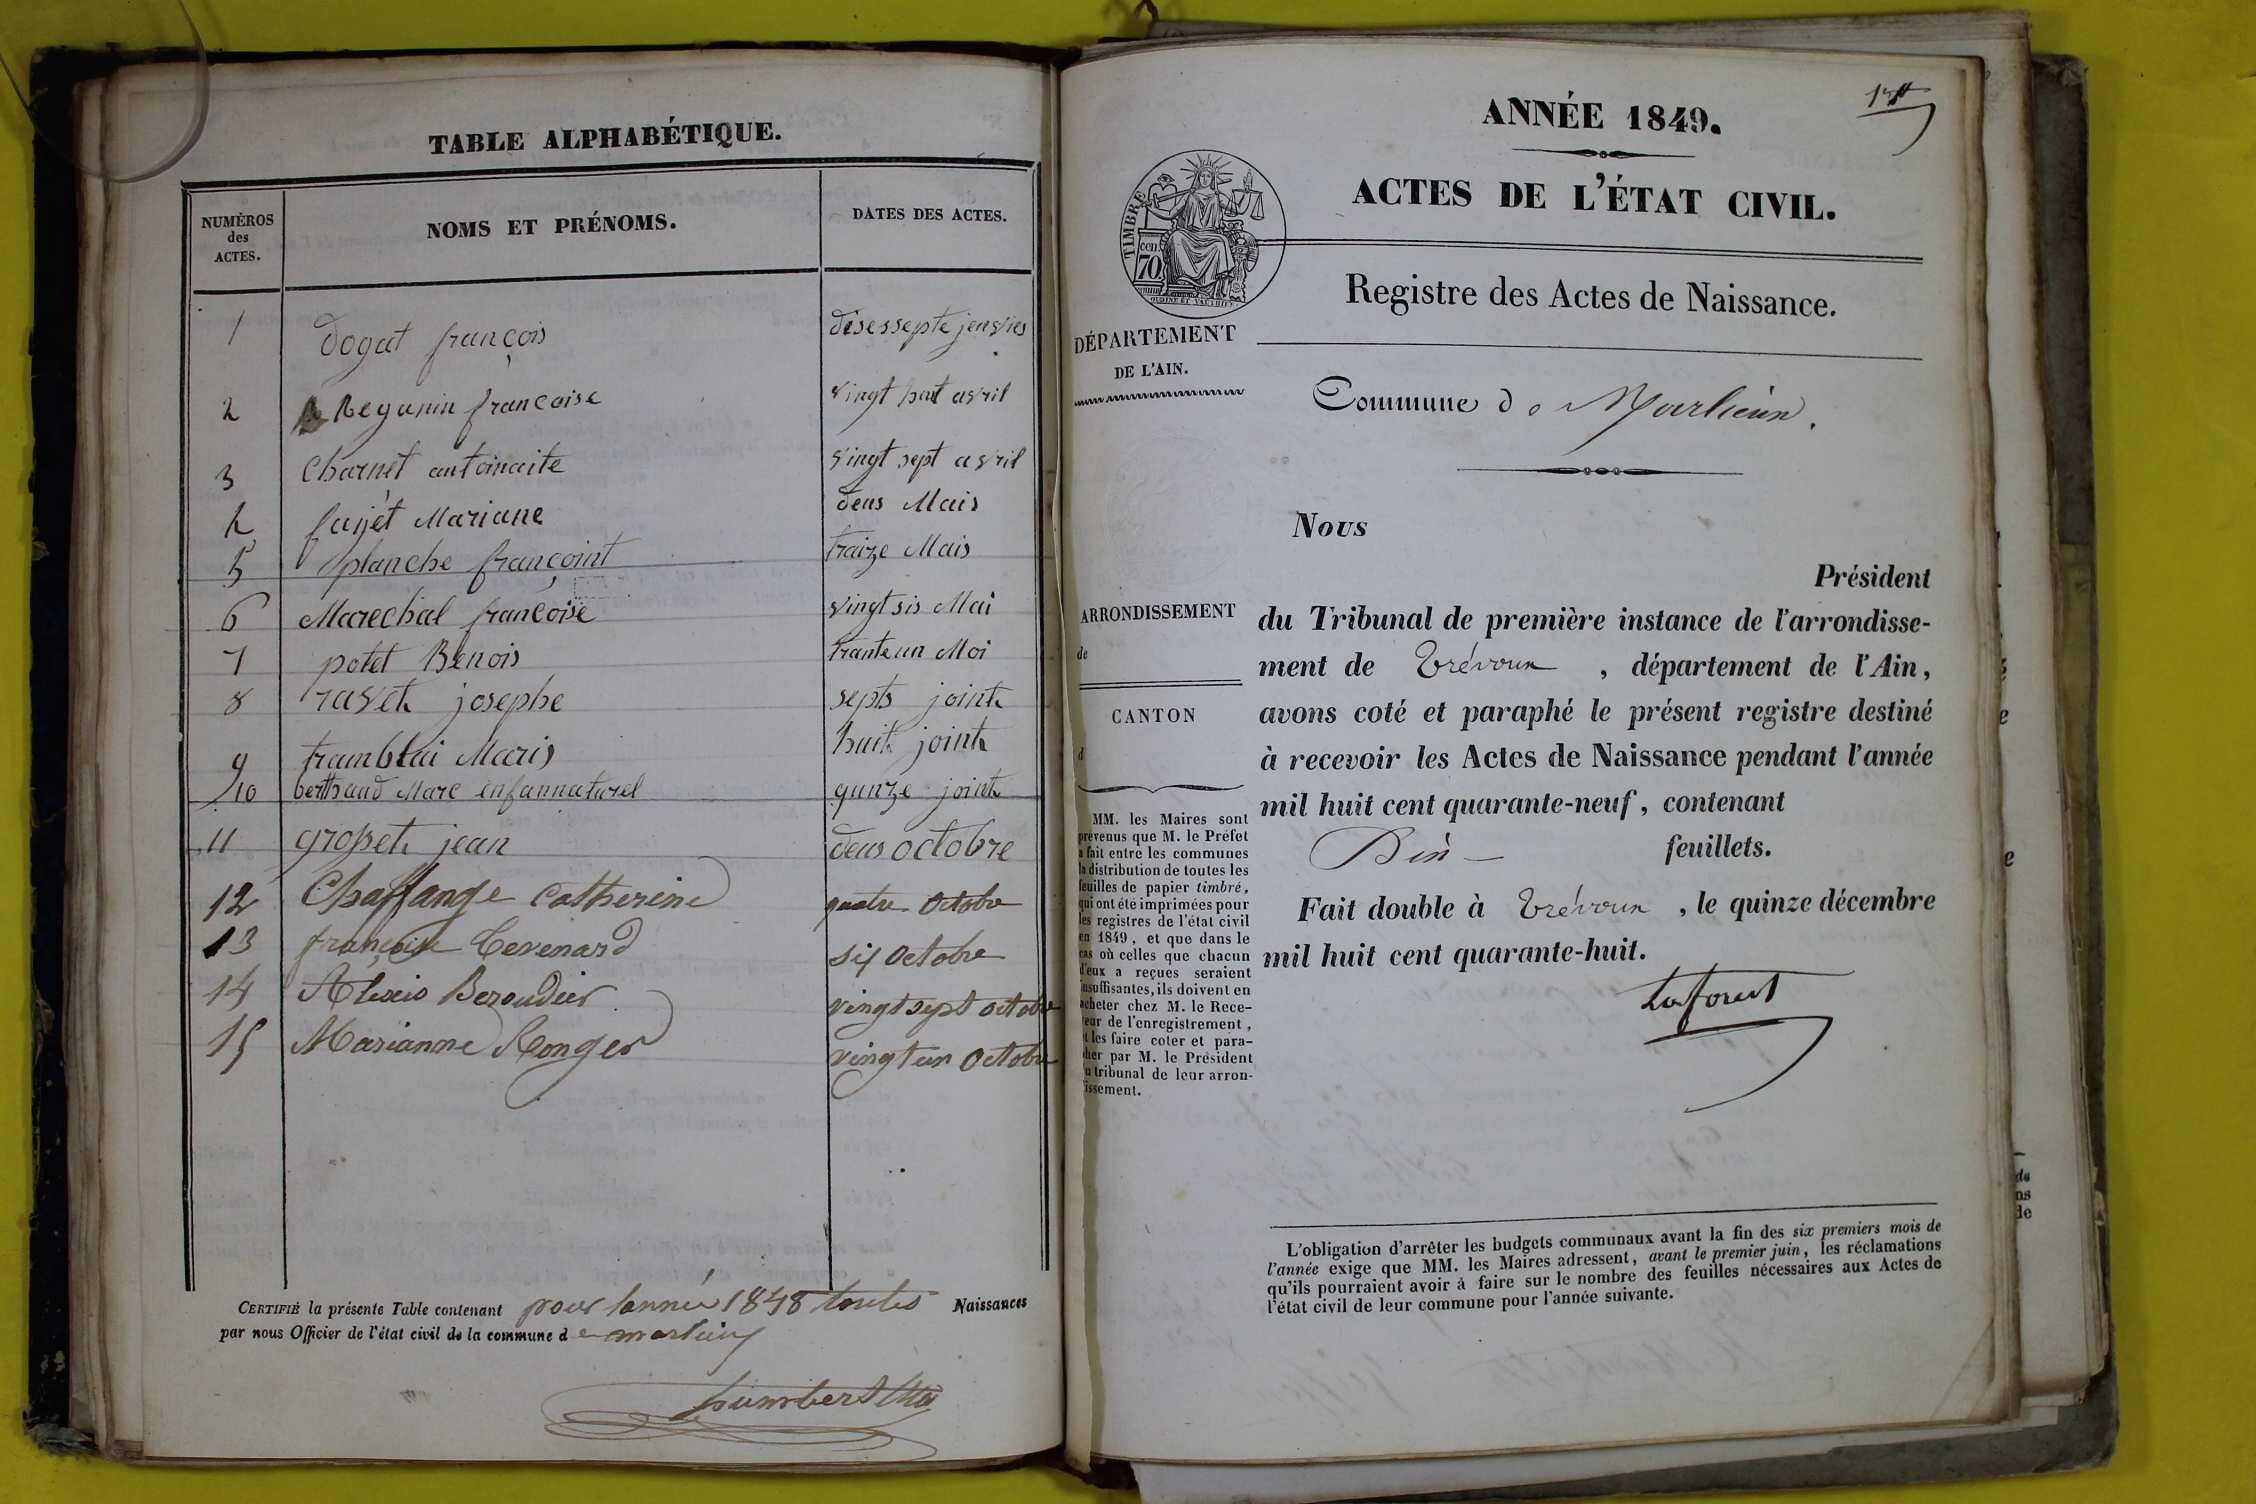 TABLE ALPHABÉTIQUE.
NUMÉROS
des
ACTES.
NOMS ET PRÉNOMS.
DATES DES ACTES.
1 dogat françois disessepte jenvies
2 Regunin françoise vingt huit avril
3 Charnet antoinaite vingt sept avril
4 fayet Mariane deus Mais
5 planche françoint traize Mais
6 Marechal françoise vingt sis Mai
7 potet Benois tranteun Moi
8 ravet josephe septs joint
9 tramblai Maris huit joint
10 berttraud Marc enfannaturel qunze joint
11 grosset jean deus octobre
12 Chaffange Catherine quatre Octobre
13 françoise Cevenard six Octobre
14 Alexis Beroudier vingt sept octobre
15 Marianne Ronger vingt un Octobre
CERTIFIÉ la présente Table contenant pour lannée 1848 toutes Naissances
par nous Officier de l'état civil de la commune de marlieux
humbert
1er
ANNÉE 1849.
ACTES DE L'ÉTAT CIVIL.
TIMBRE
70
cen.
OUDINÉ ET VAUTHIER
Registre des Actes de Naissance.
DÉPARTEMENT
DE L'AIN.
Commune de Marlieux.
Nous
Président
ARRONDISSEMENT
de
CANTON
d
du Tribunal de première instance de l'arrondisse-
ment de Trévoux , département de l'Ain,
avons coté et paraphé le présent registre destiné
à recevoir les Actes de Naissance pendant l'année
mil huit cent quarante-neuf, contenant
Dix feuillets.
Fait double à Trévoux , le quinze décembre
mil huit cent quarante-huit.
Laforest
MM. les Maires sont
prévenus que M. le Préfet
a fait entre les communes
la distribution de toutes les
feuilles de papier timbré,
qui ont été imprimées pour
les registres de l'état civil
en 1849, et que dans le
cas où celles que chacun
d'eux a reçues seraient
insuffisantes, ils doivent en
acheter chez M. le Rece-
veur de l'enregistrement,
et les faire coter et para-
pher par M. le Président
du tribunal de leur arron-
dissement.
L'obligation d'arrêter les budgets communaux avant la fin des six premiers mois de
l'année exige que MM. les Maires adressent, avant le premier juin, les réclamations
qu'ils pourraient avoir à faire sur le nombre des feuilles nécessaires aux Actes de
l'état civil de leur commune pour l'année suivante.